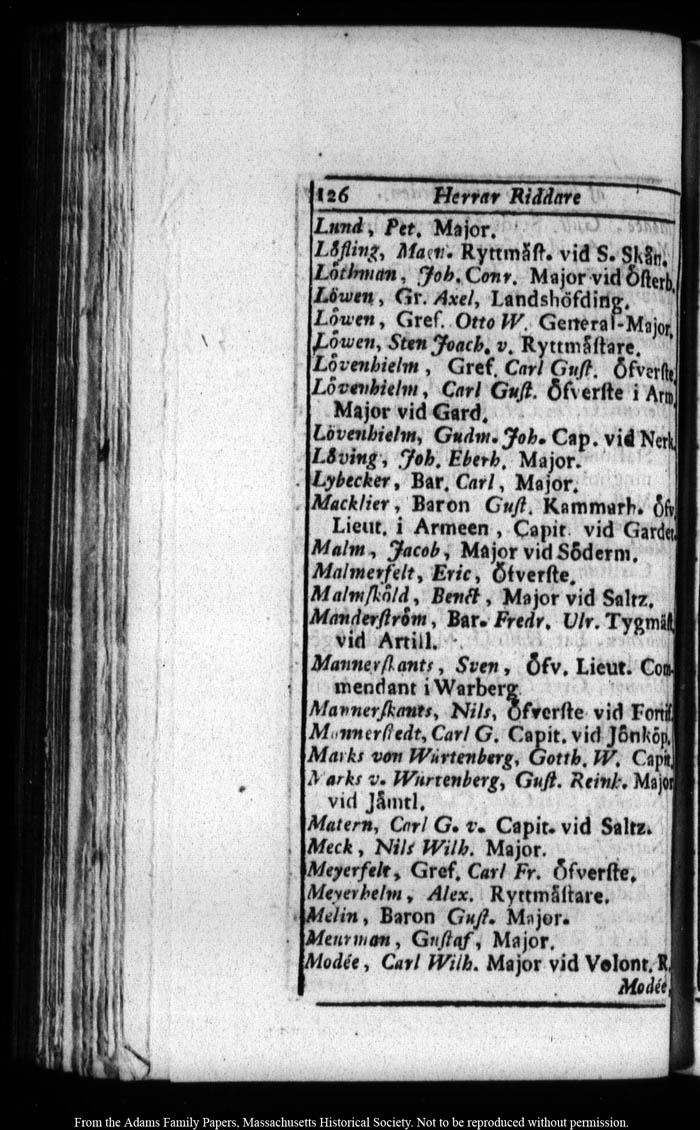 126 Herrar Riddare
Lund, Pet. Major.
Löfling, Magn. Ryttmåſt. vid S. Skån.
Löthman, Joh. Conr. Major vid Öſterb.
Löwen, Gr. Axel, Landshöfding.
Löwen, Gref. Otto W. General-Major,
Löwen, Sten Joach. v. Ryttmåſtare.
Lövenhielm, Gref. Carl Guſt. Öfverſte,
Lövenhielm, Carl Guſt. Öfverſte i Arm.
Major vid Gard.
Lövenhielm, Gudm. Joh. Cap. vid Nerk.
Löving, Joh. Eberh. Major.
Lybecker, Bar. Carl, Major.
Macklier, Baron Guſt. Kammarh. Öfv.
Lieut. i Armeen, Capit. vid Garder.
Malm, Jacob, Major vid Söderm.
Malmerfelt, Eric, Öfverſte.
Malmſköld, Benćt, Major vid Saltz.
Manderſtröm, Bar. Fredr. Ulr. Tygmåſt.
vid Artill.
Mannerſkants, Sven, Öfv. Lieut. Com-
mendant i Warberg.
Mannerſkants, Nils, Öfverſte vid Fortif.
Mannerſtedt, Carl G. Capit. vid Jönköp.
Marks von Würtenberg, Gotth. W. Capit.
Marks v. Würtenberg, Guſt. Reink. Major
vid Jåmtl.
Matern, Carl G. v. Capit. vid Saltz.
Meck, Nils Wilh. Major.
Meyerfelt, Gref. Carl Fr. Öfverſte.
Meyerhelm, Alex. Ryttmåſtare.
Melin, Baron Guſt. Major.
Meurman, Guſtaf, Major.
Modée, Carl Wilh. Major vid Volont. R.
Modée,
From the Adams Family Papers, Massachusetts Historical Society. Not to be reproduced without permission.